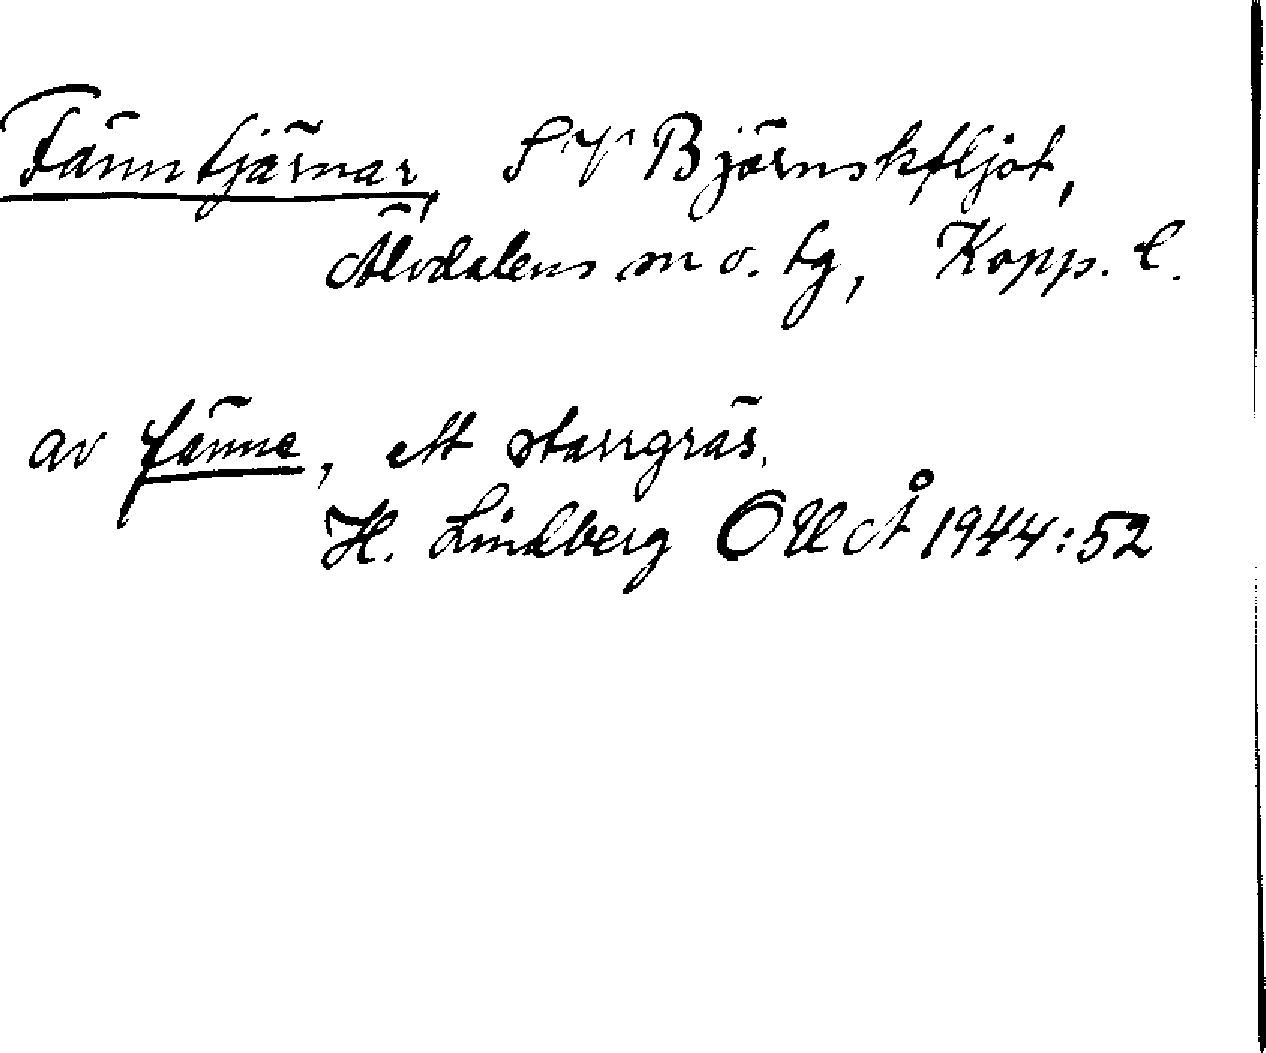 Fänntjärnar, SV Björnskfljot,
Älvdalens sn o. tg, Kopp. l.
av fänne, ett starrgräs.
H. Lindberg OUÅ 1944:52